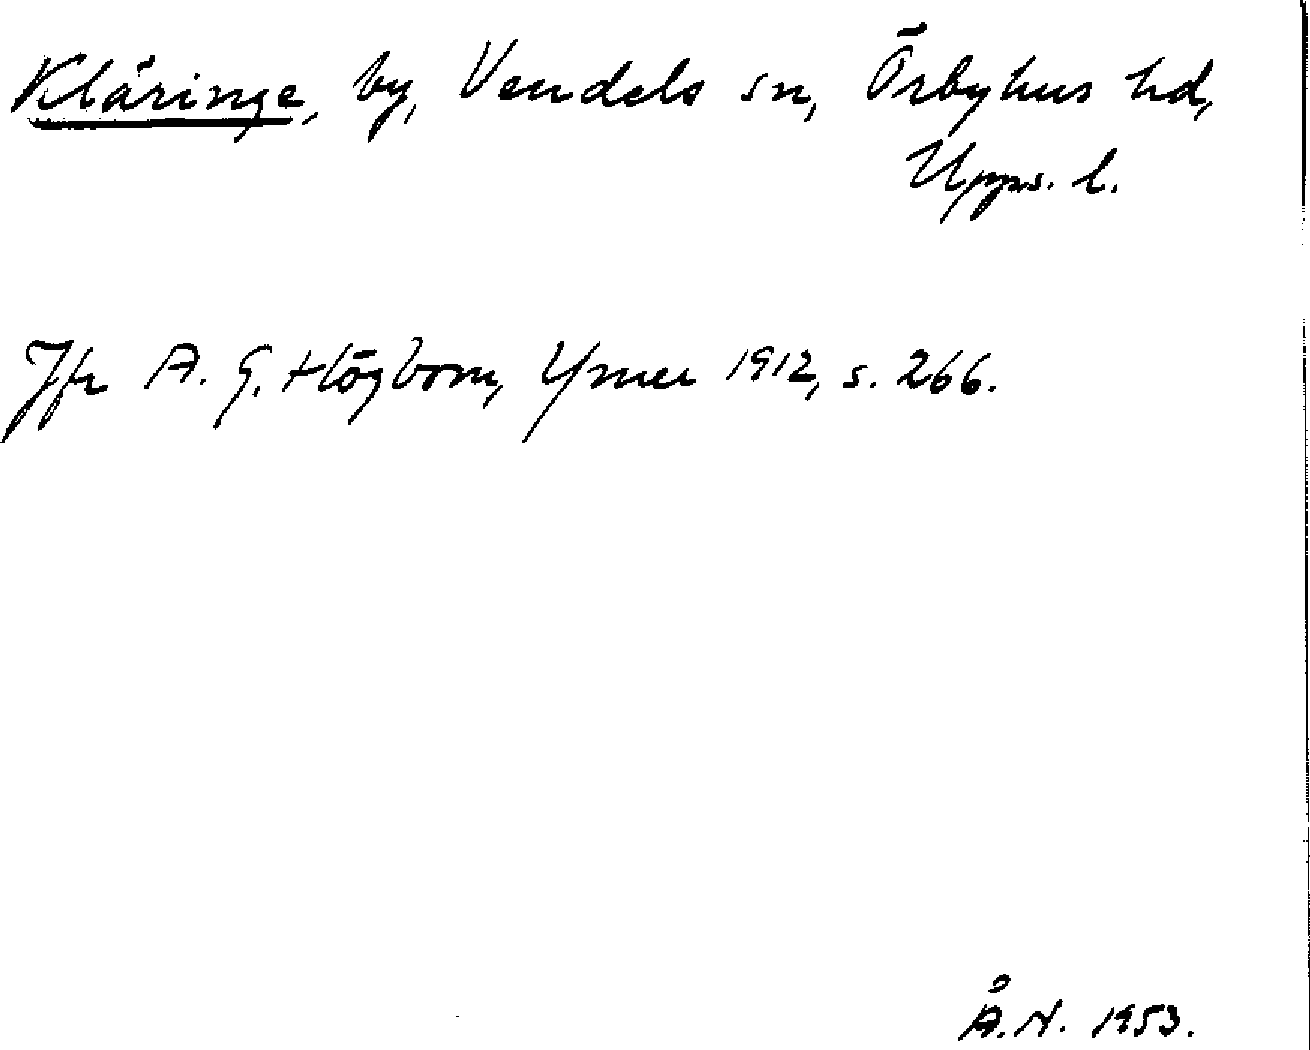 Kläringe, by, Vendels sn, Örbyhus hd,
Upps. l.
Jfr A. G. Högbom, Ymer 1912, s. 266.
Å.N. 1953.